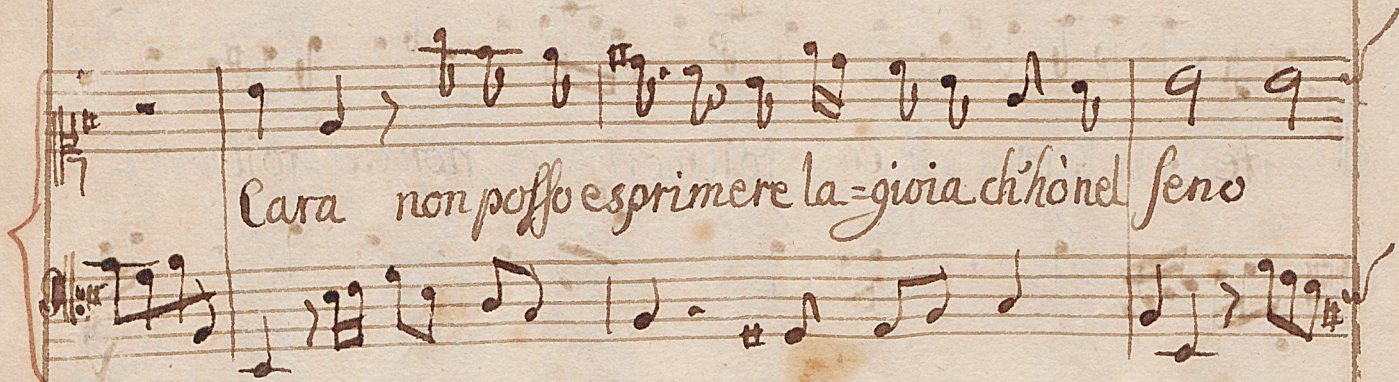 Cara non posso esprimere la=gioia ch'hò nel seno